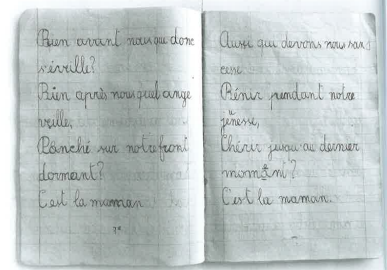 Bien avant nous que donc
s'éveille?
Bien après nous quel ange
veille,
Pānché sur notre front
dormant?
C'est la maman
Aussi que devons nous sans
cesse
Bénir pendant notre
jenesse,
Chérir jusqu'au dernier
momant?
C'est la maman.